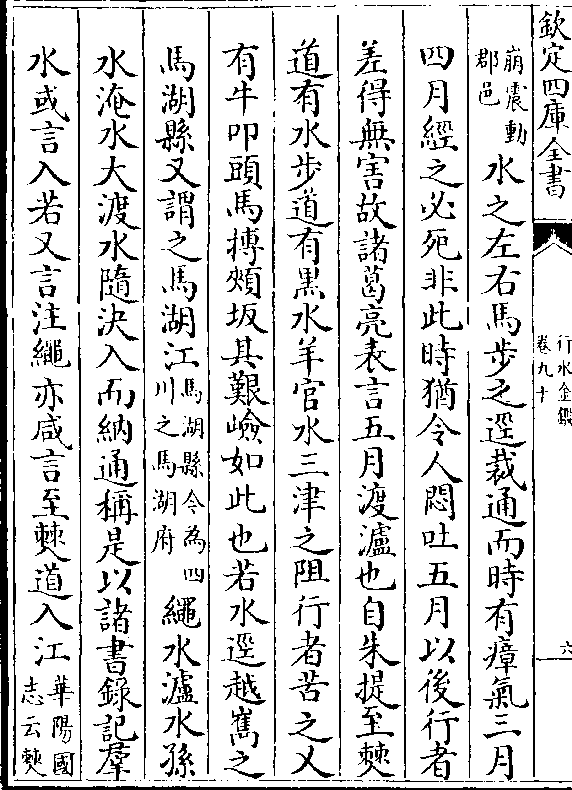 欽定四庫全書
行水金鑑
卷九十
六
崩震動
郡邑
水之左右馬步之逕裁通而時有瘴氣三月
四月經之必死非此時猶令人悶吐五月以後行者
差得無害故諸葛亮表言五月渡瀘也自朱提至僰
道有水步道有黑水羊官水三津之阻行者苦之又
有牛叩頭馬搏頰坂其艱嶮如此也若水逕越嶲之
馬湖縣又謂之馬湖江
馬湖縣今為四
川之馬湖府
繩水瀘水孫
水淹水大渡水隨決入而納通稱是以諸書錄記羣
水或言入若又言注繩亦咸言至僰道入江
華陽國
志云僰